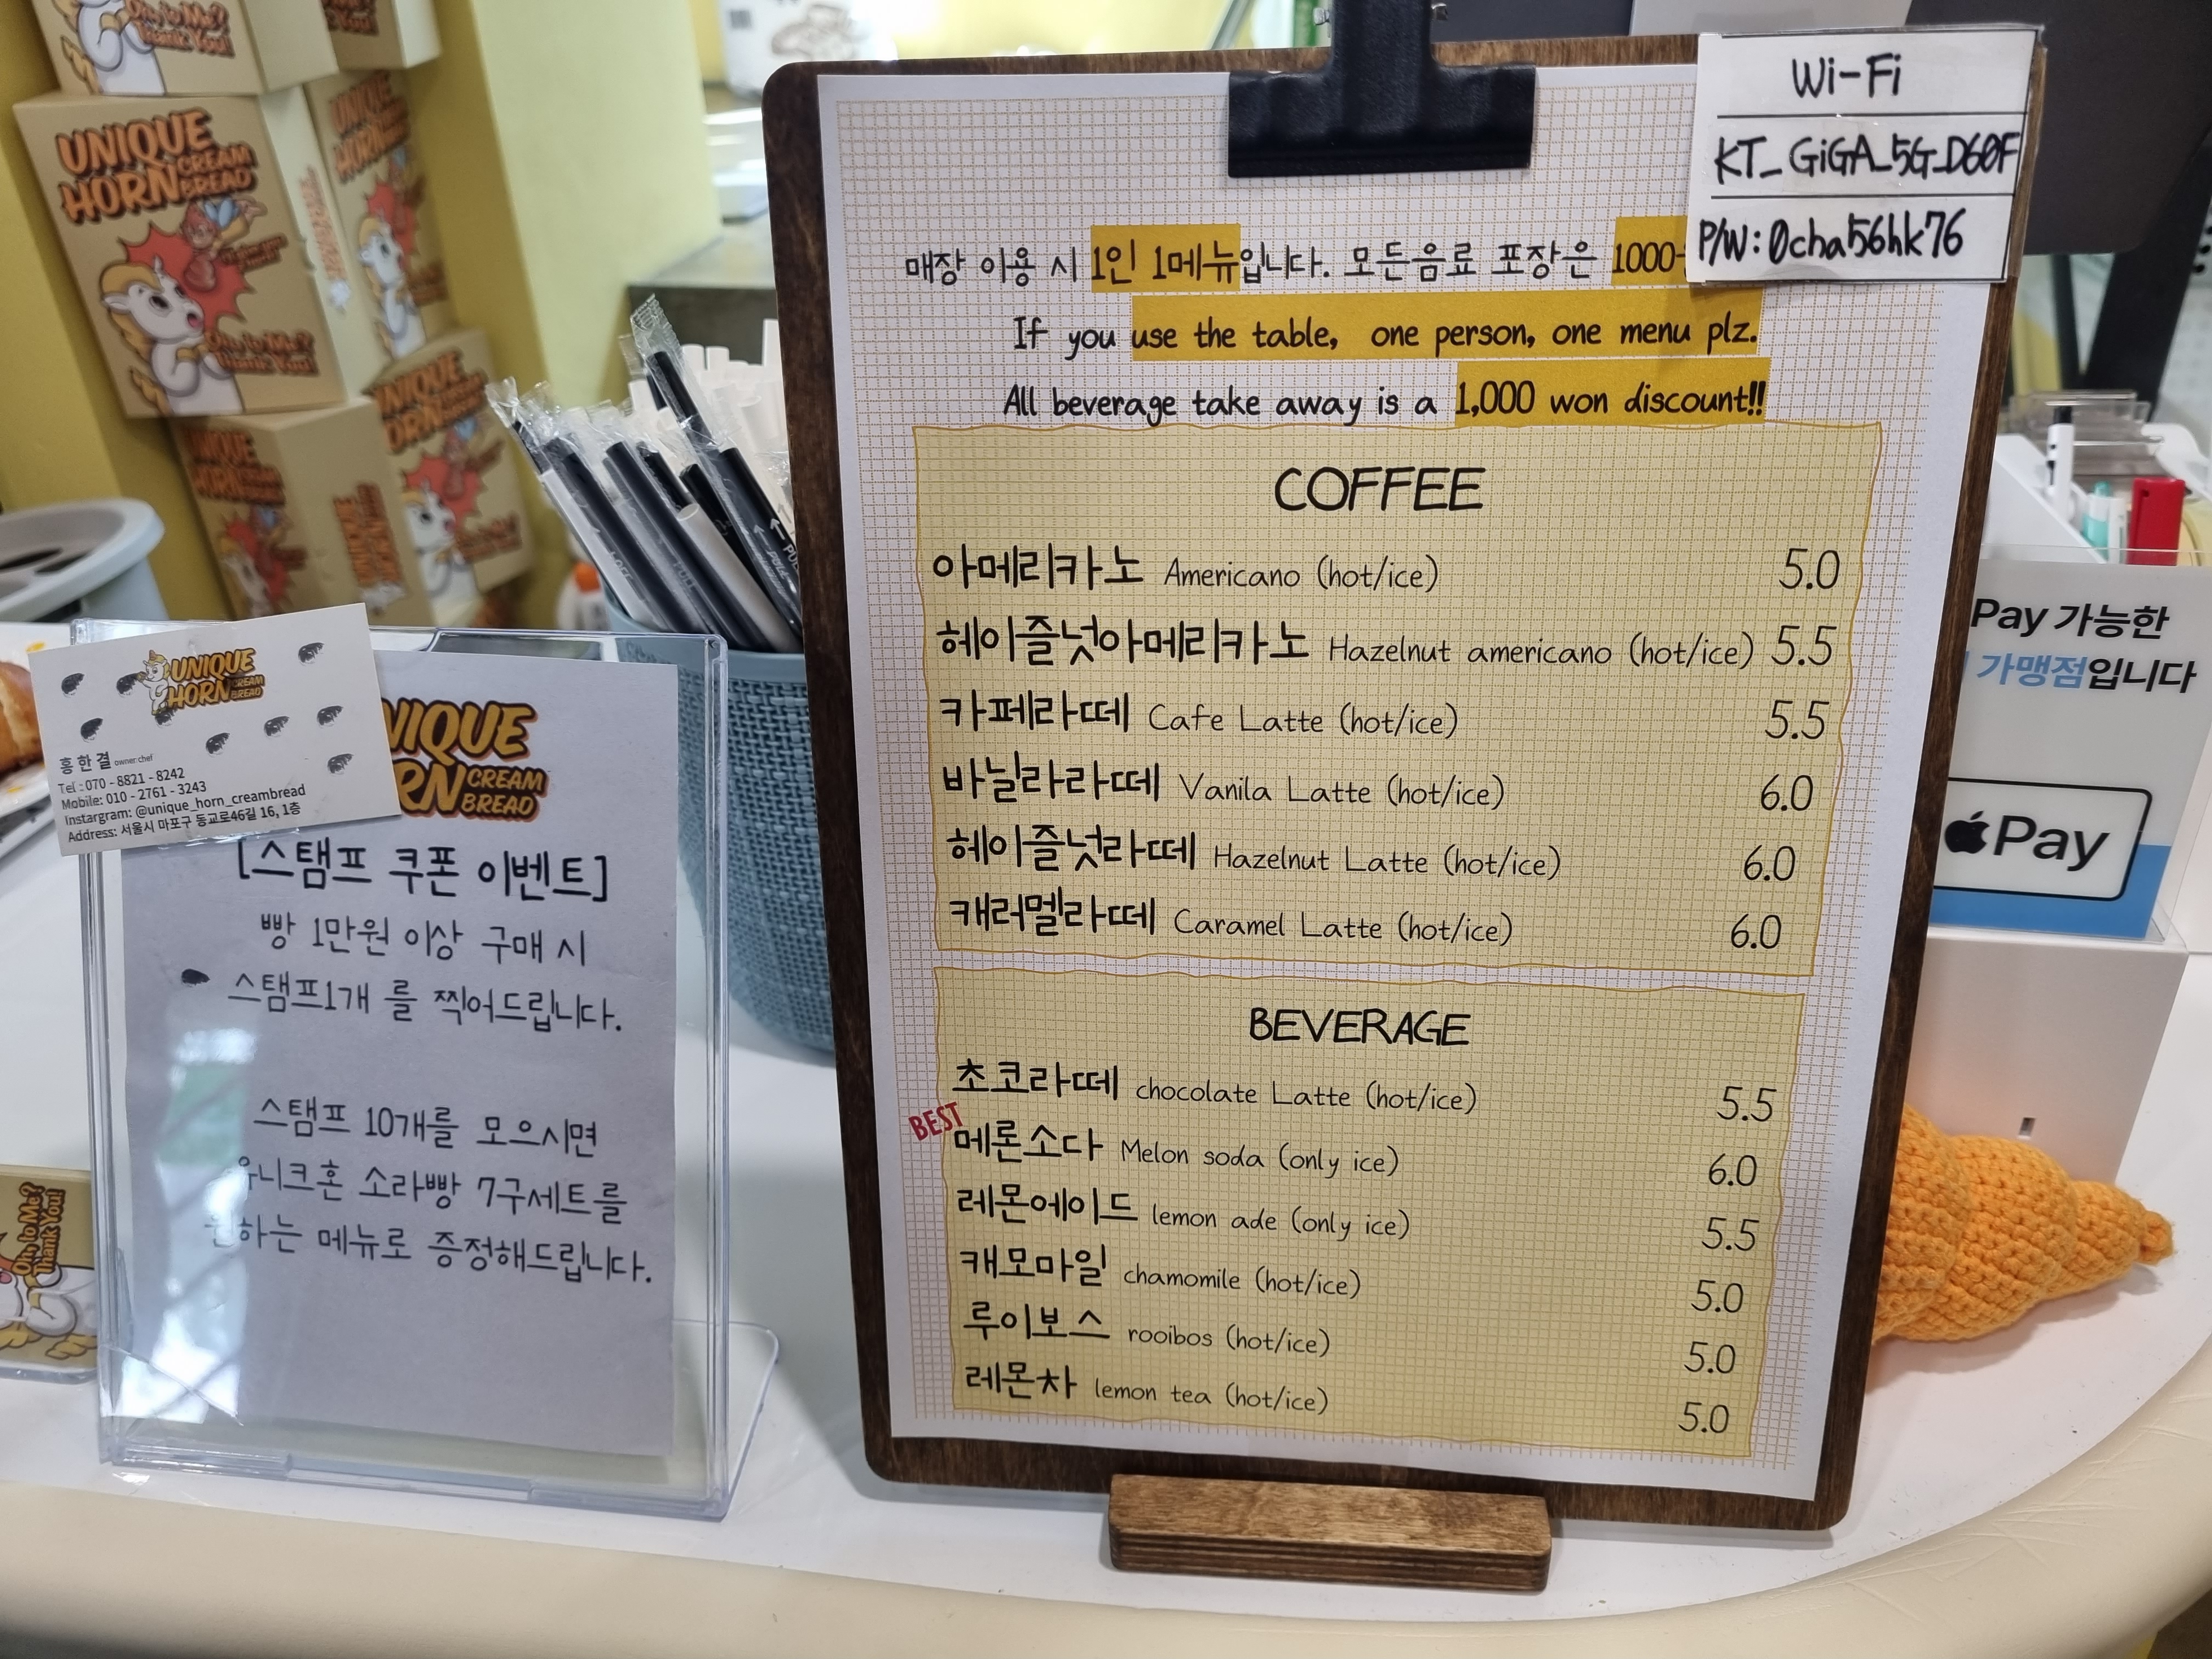 UNIQUE
HORN CREAM BREAD
Oh, is Me?
Thank You!
UNIQUE
HORN CREAM
BREAD
홍한결 owner chef
Tel : 070 - 8821 - 8242
Mobile: 010 - 2761 - 3243
Instargram: @unique_horn_creambread
Address: 서울시 마포구 동교로46길 16, 1층
NIQUE
RN CREAM
BREAD
[스탬프 쿠폰 이벤트]
빵 1만원 이상 구매 시
스탬프1개 를 찍어드립니다.
스탬프 10개를 모으시면
유니크혼 소라빵 7구세트를
원하는 메뉴로 증정해드립니다.
Wi-Fi
KT_GiGA_5G_D60F
P/W: 0cha56hk76
매장 이용 시 1인 1메뉴입니다. 모든음료 포장은 1000
If you use the table, one person, one menu plz.
All beverage take away is a 1,000 won discount!!
COFFEE
아메리카노 Americano (hot/ice) 5.0
헤이즐넛아메리카노 Hazelnut americano (hot/ice) 5.5
카페라떼 Cafe Latte (hot/ice) 5.5
바닐라라떼 Vanila Latte (hot/ice) 6.0
헤이즐넛라떼 Hazelnut Latte (hot/ice) 6.0
캐러멜라떼 Caramel Latte (hot/ice) 6.0
BEVERAGE
초코라떼 chocolate Latte (hot/ice) 5.5
BEST
메론소다 Melon soda (only ice) 6.0
레몬에이드 lemon ade (only ice) 5.5
캐모마일 chamomile (hot/ice) 5.0
루이보스 rooibos (hot/ice) 5.0
레몬차 lemon tea (hot/ice) 5.0
Pay 가능한
가맹점입니다
Pay